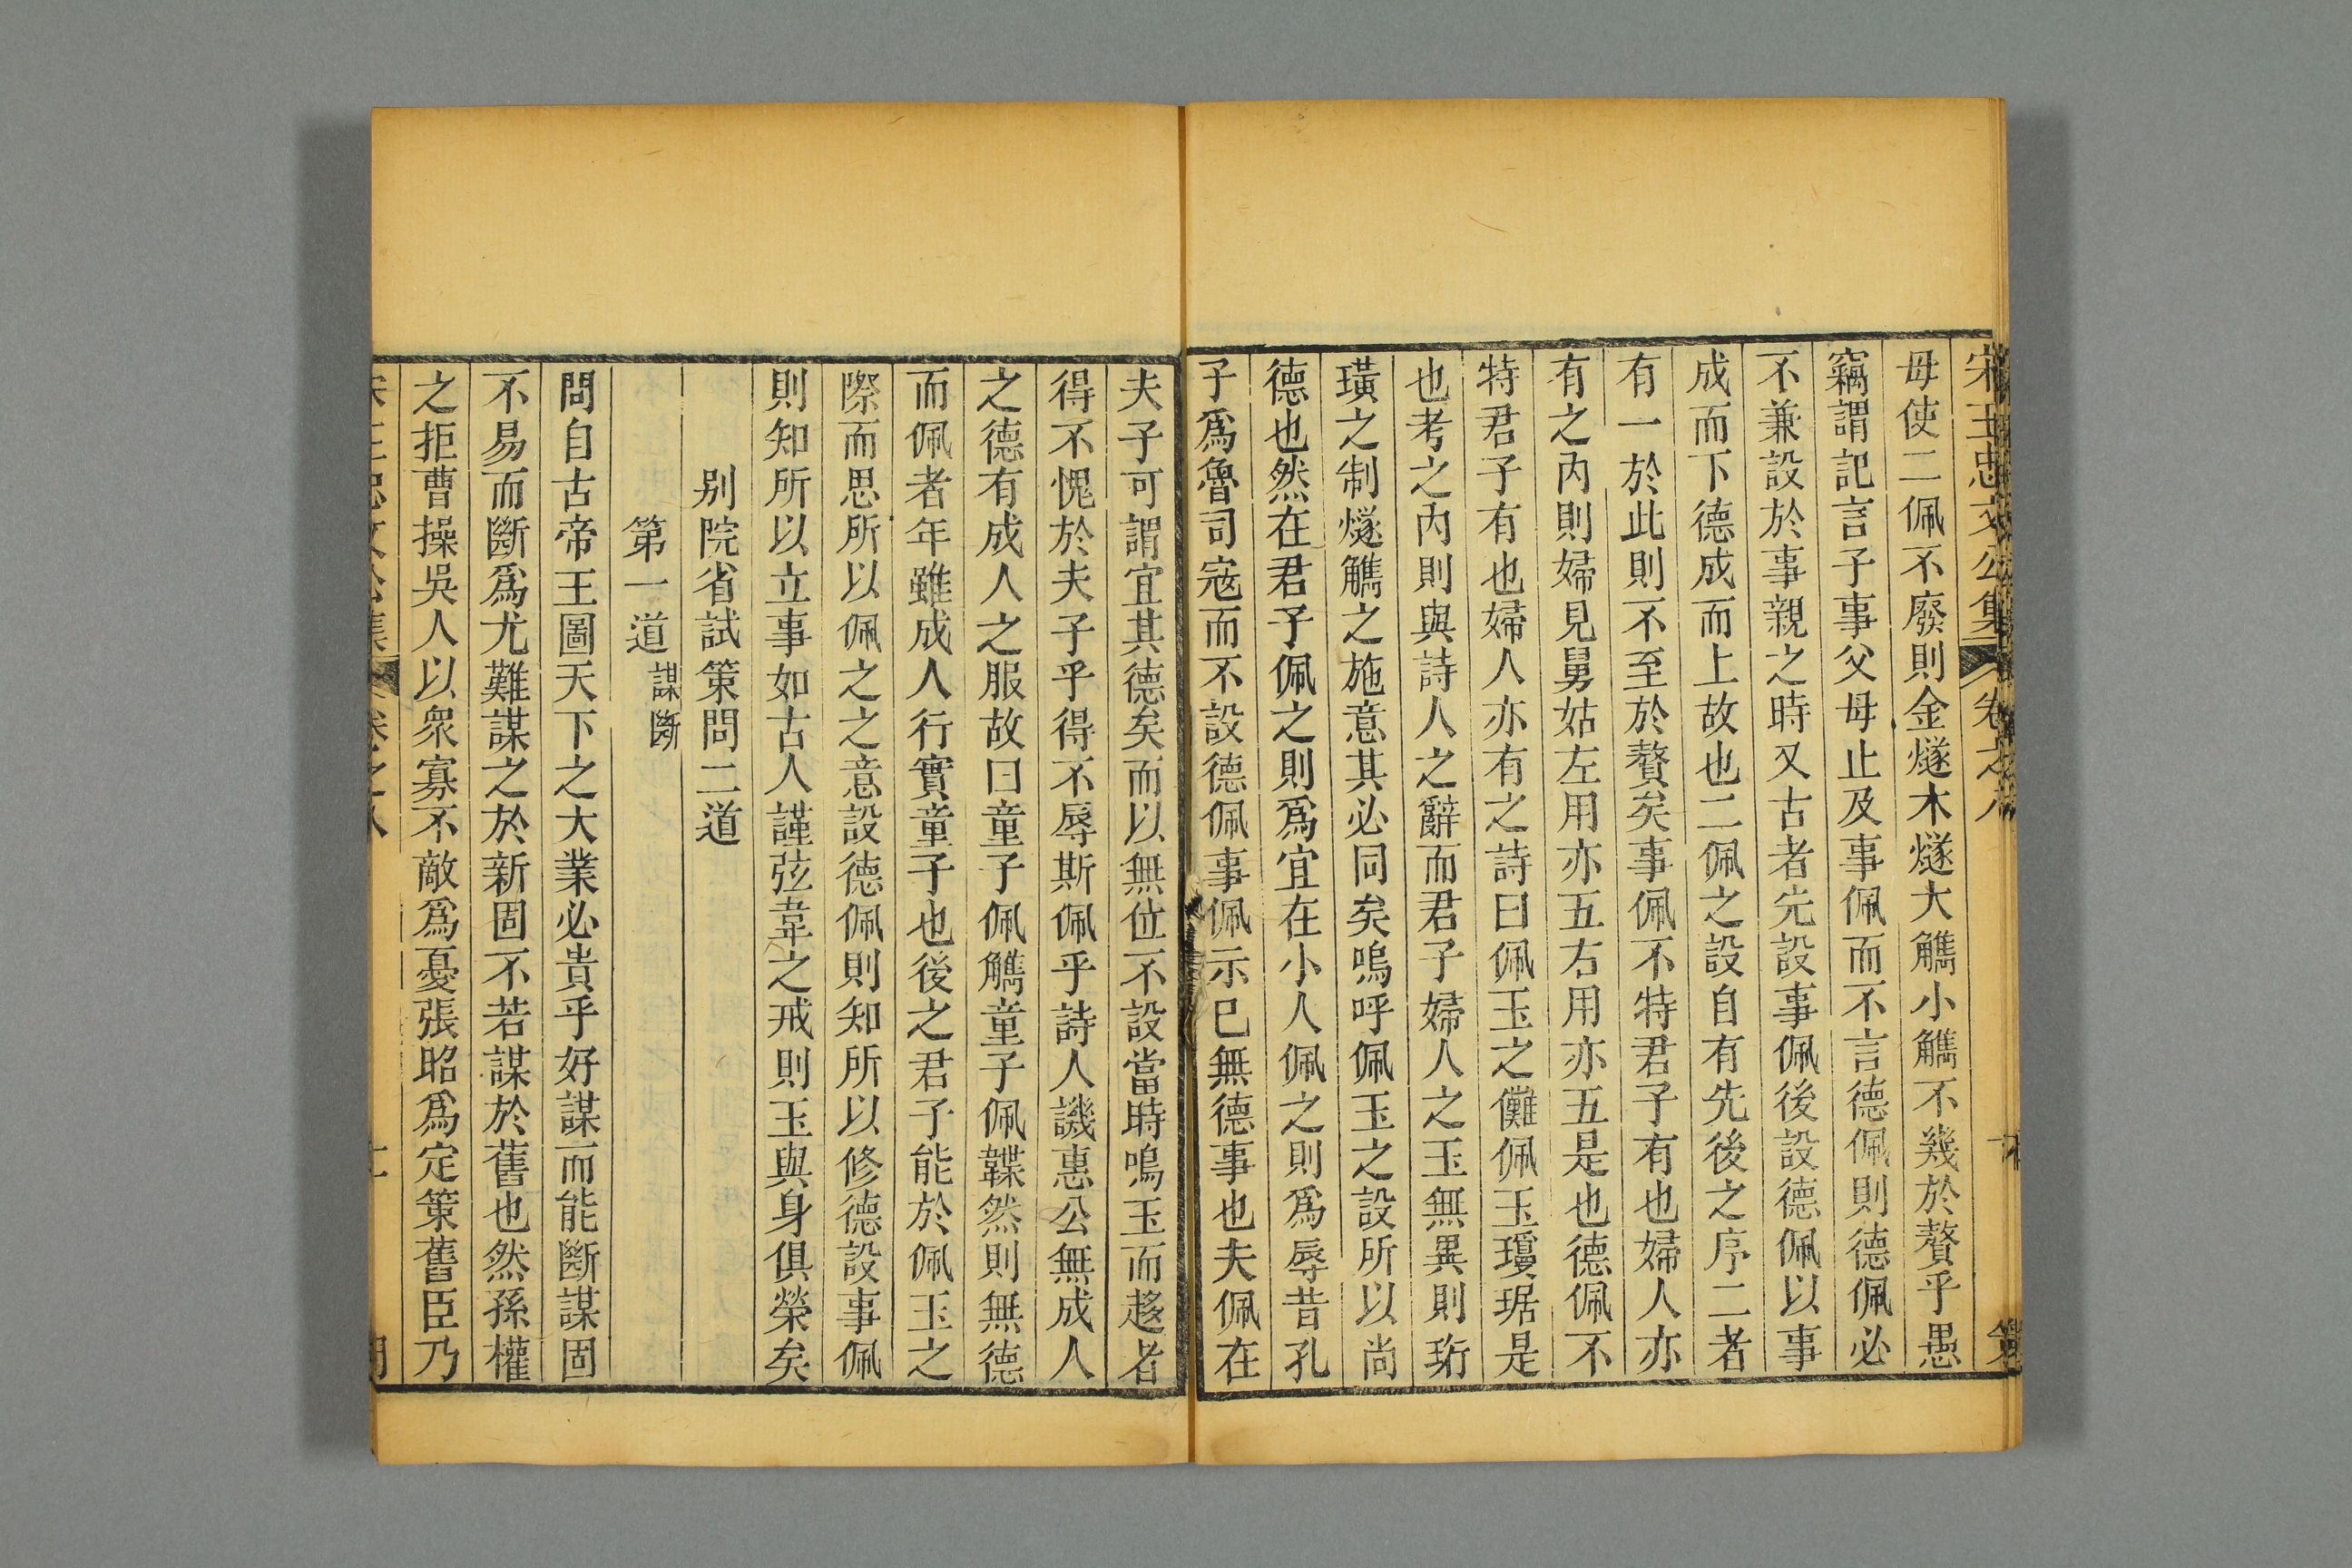 宋王忠文公集 卷之八
母使二佩不廢則金燧木燧大觹小觹不幾於贅乎愚
竊謂記言子事父母止及事佩而不言德佩則德佩必
不兼設於事親之時又古者先設事佩後設德佩以事
成而下德成而上故也二佩之設自有先後之序二者
有一於此則不至於贅矣事佩不特君子有也婦人亦
有之內則婦見舅姑左用亦五右用亦五是也德佩不
特君子有也婦人亦有之詩曰佩玉之儺佩玉瓊琚是
也考之內則與詩人之辭而君子婦人之玉無異則珩
璜之制燧觹之施意其必同矣嗚呼佩玉之設所以尚
德也然在君子佩之則爲宜在小人佩之則爲辱昔孔
子爲魯司寇而不設德佩事佩示已無德事也夫佩在
夫子可謂宜其德矣而以無位不設當時鳴玉而趍者
得不愧於夫子乎得不辱斯佩乎詩人譏惠公無成人
之德有成人之服故曰童子佩觹童子佩韘然則無德
而佩者年雖成人行實童子也後之君子能於佩玉之
際而思所以佩之之意設德佩則知所以修德設事佩
則知所以立事如古人謹弦韋之戒則玉與身俱榮矣
別院省試策問二道
第一道 謀斷
問自古帝王圖天下之大業必貴乎好謀而能斷謀固
不易而斷爲尤難謀之於新固不若謀於舊也然孫權
之拒曹操吳人以衆寡不敵爲憂張昭爲定策舊臣乃